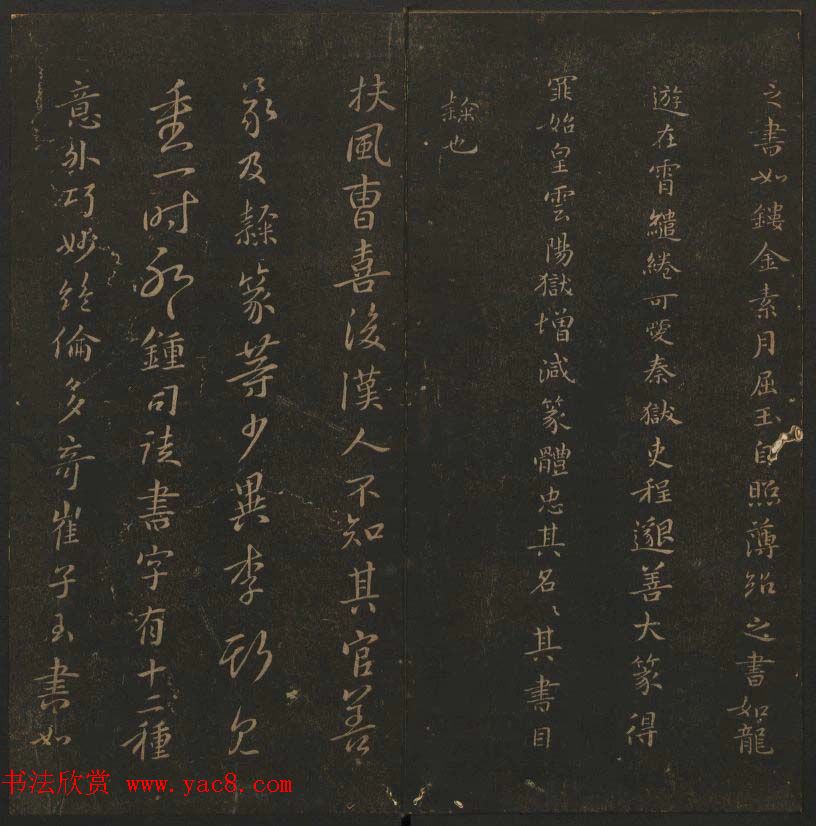 之書如鏤金素月屈玉自照薄紹之書如龍
遊在霄繾綣可愛秦獄吏程邈善大篆得
罪始皇雲陽獄增減篆體忠其名〻其書目
隸也
扶風曹喜後漢人不知其官善
篆及隸篆等少異李斯見
重一時 鍾司徒書字有十二種
意外巧妙絕倫多奇崔子玉書如
书法欣赏 www.yac8.com